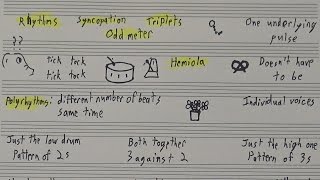 Rhythms Syncopation Triplets
Odd meter
One underlying
pulse
??
tick tock
tick tock
Hemiola
Doesn't have
to be
Polyrhythms: different number of beats
same time
Individual voices
Just the low drum
Pattern of 2s
Both together
3 against 2
Just the high one
Pattern of 3s